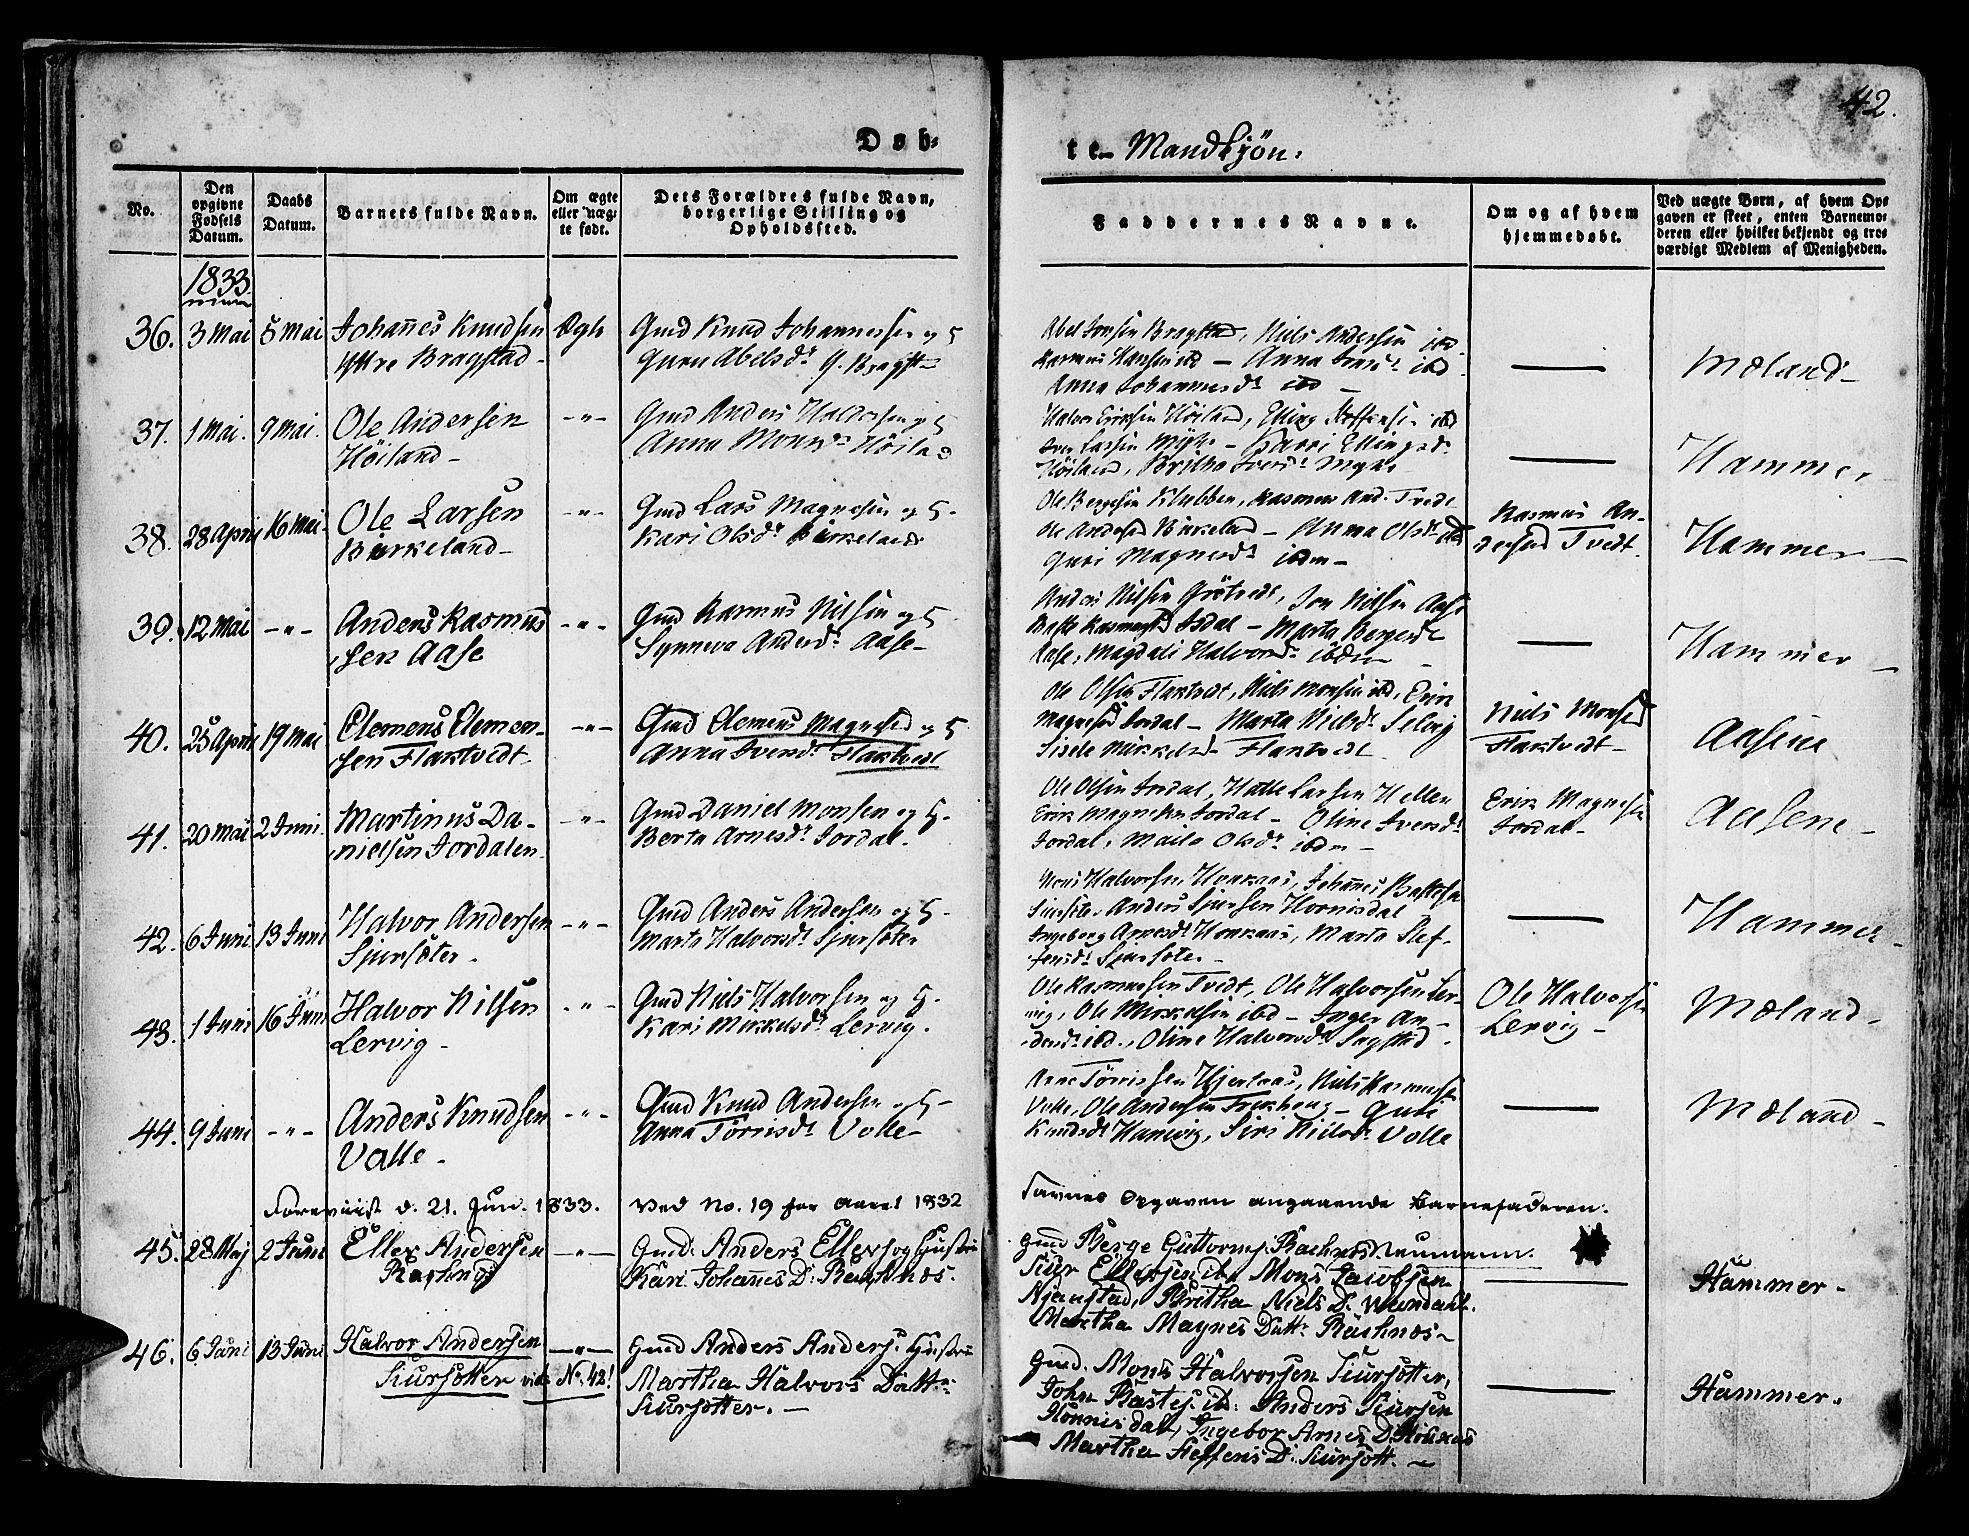 42.
Døb-
te Mandkjön.
No.
Den opgivne Fødsels Datum.
Daabs Datum.
Barnets fulde Navn.
Om ægte eller uæg- te født.
Dets Forældres fulde Navn, borgerlige Stilling og Opholdssted.
Faddernes Navne.
Om og af hvem hjemmedøbt.
Ved uægte Børn, af hvem Op- gaven er skeet, enten Barnemo- deren eller hvilket bekjendt og tro- værdigt Medlem af Menigheden.
1833
36. 3 Mai 5 Mai Johannes Knudsen Ægte Gmd Knud Johannessen og H
Yttre Bragstad - Guru Abelsd. Y. Bragst
Abel Jonsen Bragstad, Niels Andersen ibd
Rasmus Hansen ibd - Anna Ivers d. ibd
Anna Johannesd. ibd -
Mæland -
37. 1 Mai. 9 Mai. Ole Andersen -"- Gmd Anders Halvorsen og H
Höiland - Anna Monsd. Höiland
Halvor Eriksen Höiland, Elling Steffensen ibd
Iver Larsen Myhe - Kari Ellingsd.
Höiland, Britha Iversd. Myhe
Hammer
38. 28 April 16 Mai. Ole Larsen -"- Gmd Lars Magnesen og H.
Birkeland - Kari Olsd. Birkeland
Ole Bergesen Klubben, Rasmus And. Tvedt
Ole Andersen Birkeland - Anna Olsd. ibd
Guri Magnesd. ibdm -
Rasmus An-
dersen Tvedt.
Hammer -
39. 12 Mai -"- Anders Rasmus -"- Gmd Rasmus Nilsen og H.
sen Aase Synneva Andersd. Aase -
Anders Nilsen Grötvedt, Jon Nilsen Aase
Baste Rasmussen Isdal - Marta Bergesd.
Aase, Magdali Halvorsd. ibdm
Hammer -
40. 25 April 19 Mai Clemens Clemen- -"- Gmd Clemens Magnesen og H
sen Flaktvedt. Anna Iversd. Flaktvedt
Ole Olsen Flaktvedt, Niels Monsen ibd, Erik
Magnesen Jordal - Marta Nielsd. Selvig
Sisele Mikkelsd. Flaktvedt
Niels Monsen
Flaktvedt -
Aasene
41. 20 Mai 2 Juni. Martinus Da- -"- Gmd Daniel Monsen og H.
nielsen Jordalen. Berta Arnesd. Jordal.
Ole Olsen Jordal, Halle Larsen Hellen
Erik Magnesen Jordal - Oline Iversd.
Jordal, Maile Olsd. ibdm -
Erik Magnesen
Jordal -
Aasene -
42. 6 Juni 13 Juni Halvor Andersen -"- Gmd Anders Andersen og H.
Sjursöter - Marta Halvorsd. Sjursöter
Mons Halvorsen, Johannes Bastesen
Sjursöter, Anders Sjursen Hornisdal
Ingeborg Arnesd., Marta Stef-
fensd. Sjursöter -
Hammer -
43. 1 Juni 16 Juni Halvor Nilsen -"- Gmd Niels Halvorsen og H.
Lervig - Kari Mikkelsd. Lervig.
Ole Rasmussen Tvedt, Ole Halvorsen Ler-
vig, Ole Mikkelsen ibd - Inger An-
dersd. ibd., Oline Halvorsd. Sagstad -
Ole Halvorsen
Lervig -
Mæland -
44. 9 Juni -"- Anders Knudsen -"- Gmd Knud Andersen og H -
Valle - Anna Törrisd. Valle -
Arne Törrissen Hjertaas, Niels Rasmussen
Valle, Ole Andersen - Guri
Knudsd. Hanevig, Siri Nielsd. Valle
Mæland -
Foreviist d. 21. Jun. 1833. Ved No. 19 for Aaret 1832
Savnes Opgaven angaaende Barnefaderen.
Neumann.
45. 28 Maj 2 Juni Eller Andersen -"- Gmd: Anders Ellers og Hustru
Raghnøs Kari Johannes D: Raghnøs.
Gmd Berge Guttorms. Raghnøs
Siur Ellersen ib. Mons Jacobsen
Njaastad, Britha Niels D.
Martha Magnes Datt: Raghnøs -
Hammer -
46. 6 Juni 13 Juni Halvor Andersen -"- Gmd Anders Anders. Hustru
Siursötter vide No. 42! Martha Halvors Datt:
Siursötter. -
Gmd. Mons Halvorsen Siursötter,
John Bastes. ib: Anders Siursen
Honnisdal, Ingebor Arnes D.
Martha Steffens D: Siursött. -
Hammer.